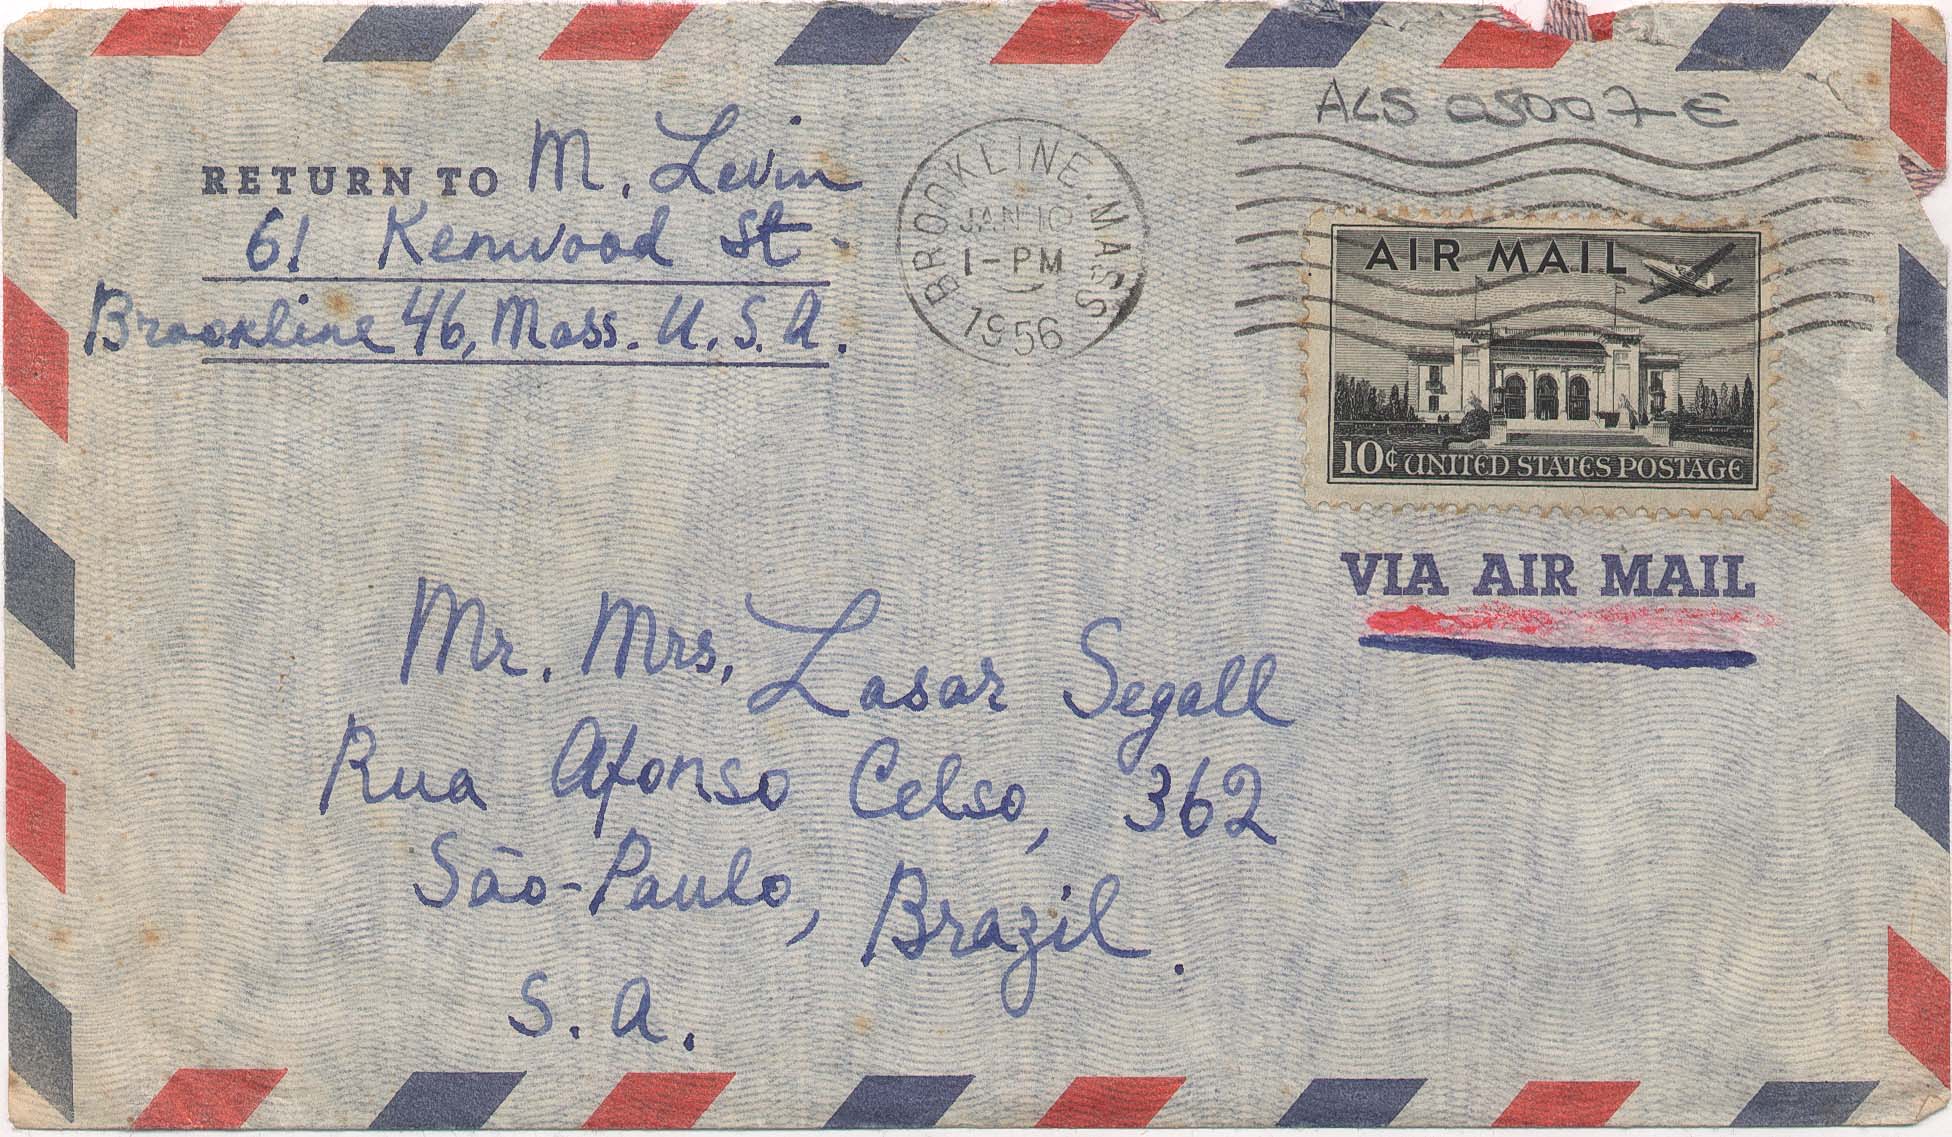 ALS 05007-E
RETURN TO M. Levin
61 Kenwood St.
Brookline 46, Mass. U.S.A.
BROOKLINE, MASS.
JAN 10
1-PM
1956
AIR MAIL
10¢ UNITED STATES POSTAGE
VIA AIR MAIL
Mr. Mrs. Lasar Segall
Rua Afonso Celso, 362
São-Paulo, Brazil.
S. A.